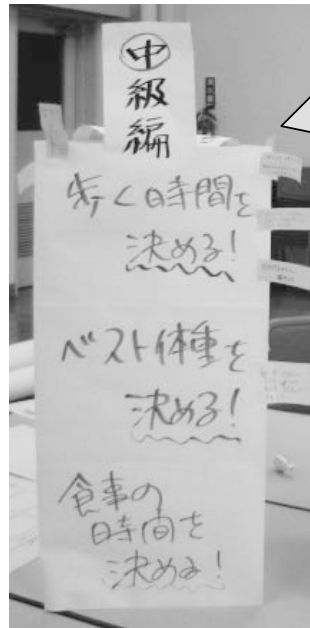 ㊥級編
歩く時間を
決める！
ベスト体重を
決める！
食事の
時間を
決める！